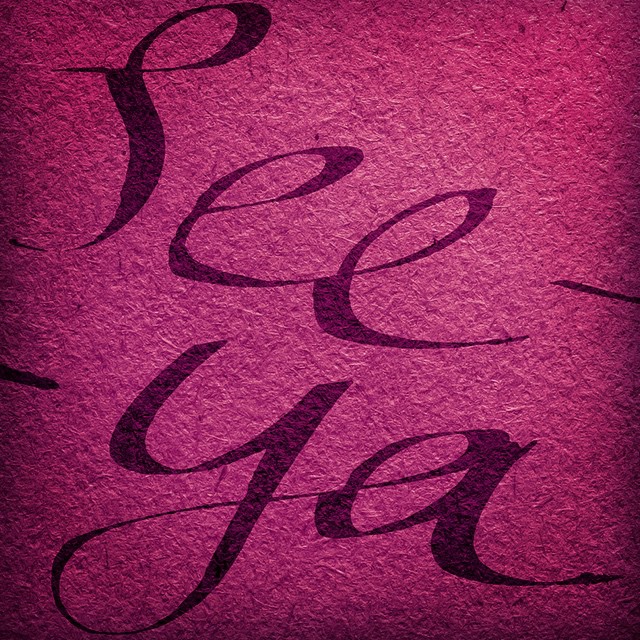 See
ya